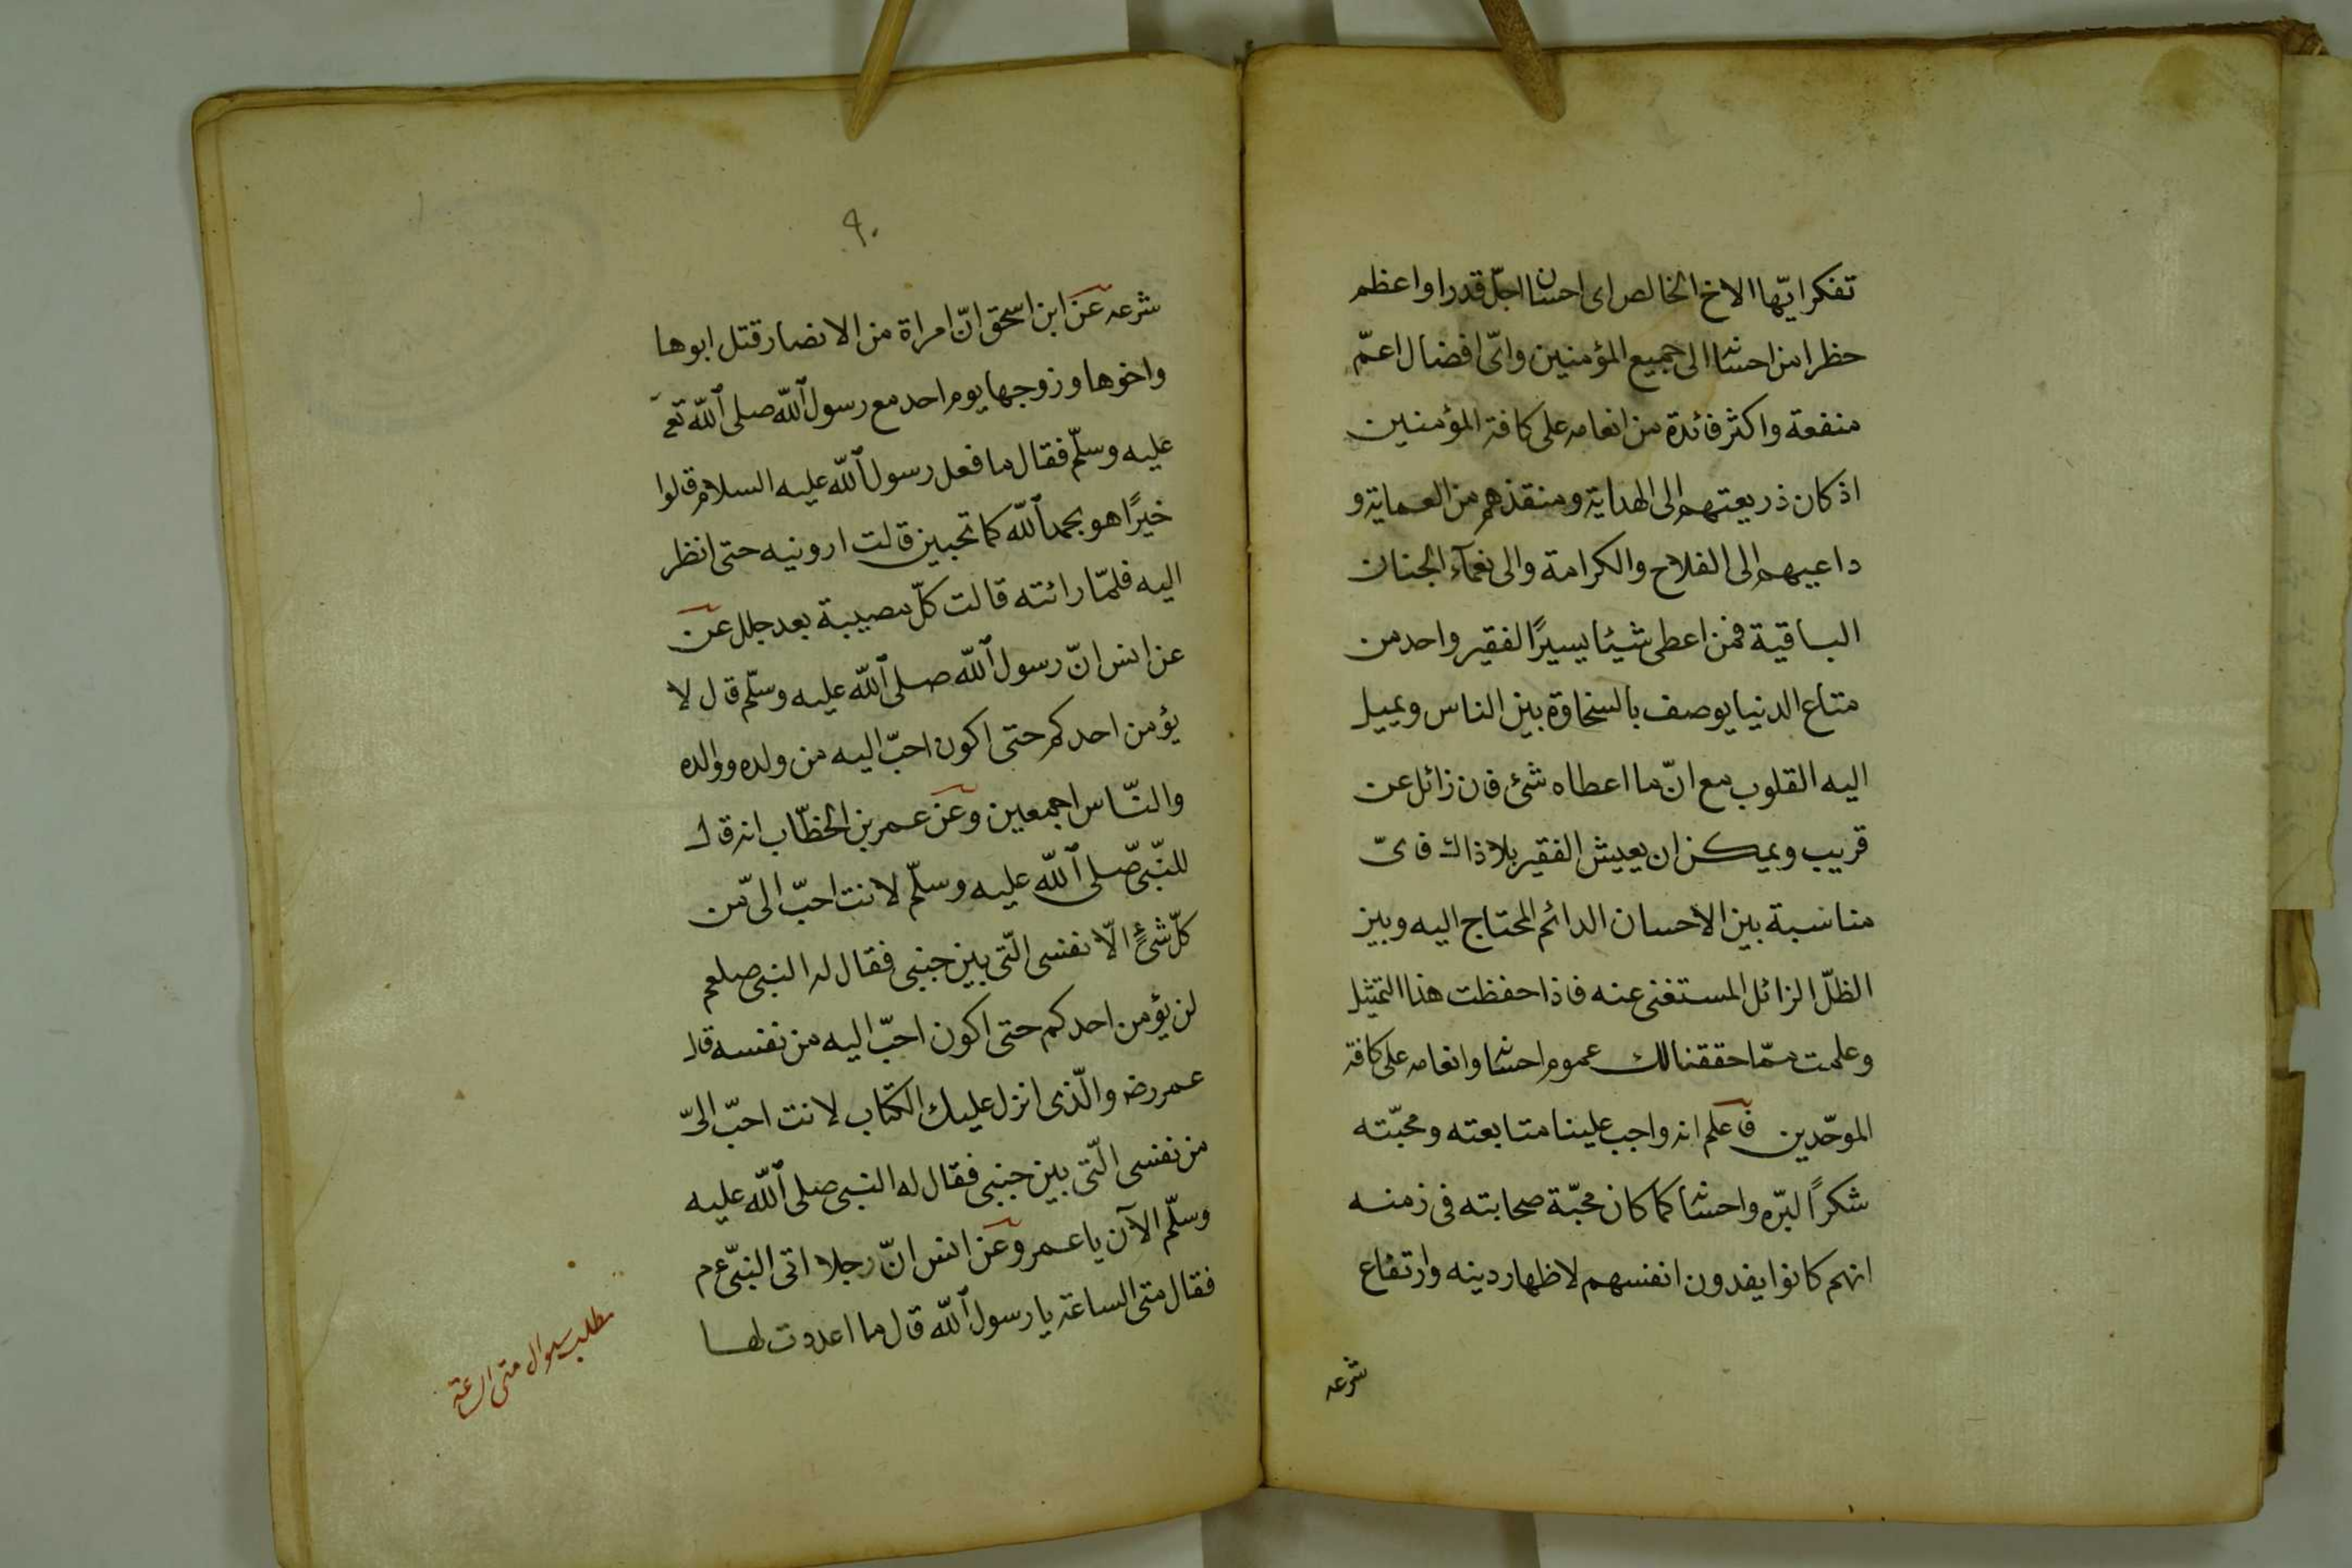 تفكر ايّها الاخ الخالص اى احسان اجلّ قدرا واعظم
حظرا من احسانه الى جميع المؤمنين واىّ افضال اعمّ
منفعة واكثر فائدة من انعامه على كافة المؤمنين
اذ كان ذريعتهم الى الهداية ومنقذهم من العماية و
داعيهم الى الفلاح والكرامة والى نعمآء الجنان
الباقية فمن اعطى شيئا يسيرًا لفقير واحد من
متاع الدنيا يوصف بالسخاوة بين الناس ويميل
اليه القلوب مع انّ ما اعطاه شئ فان زائل عن
قريب ويمكن ان يعيش الفقير بلا ذاك فاىّ
مناسبة بين الاحسان الدائم المحتاج اليه وبين
الظلّ الزائل المستغنى عنه فاذا حفظت هذا التمثيل
وعلمت ممّا حققنا لك عموم احسانه وانعامه على كافة
الموحّدين فاعلم انه واجب علينا متابعته ومحبّته
شكرًا لبرّه واحسانه كما كان محبّة صحابته فى زمنه
انهم كانوا يفدون انفسهم لاظهار دينه وارتفاع
شرعه
٩٠
شرعه عن ابن اسحق انّ امراة من الانصار قتل ابوها
واخوها وزوجها يوم احد مع رسول الله صلى الله تع
عليه وسلّم فقال ما فعل رسول الله عليه السلام قالوا
خيرًا هو بحمد الله كما تحبين قالت ارونيه حتى انظر
اليه فلمّا رائته قالت كلّ مصيبة بعد جلل عن
عن انس انّ رسول الله صلى الله عليه وسلّم قال لا
يؤمن احدكم حتى اكون احبّ اليه من ولده ووالده
والنّاس اجمعين وعن عمر بن الخطّاب انه قال
للنّبىّ صلى الله عليه وسلّم لانت احبّ الىّ من
كلّ شئٍ الّا نفسى الّتى بين جنبى فقال له النبى صلعم
لن يؤمن احدكم حتى اكون احبّ اليه من نفسه قال
عمر رضه والّذى انزل عليك الكتاب لانت احبّ الىّ
من نفسى الّتى بين جنبى فقال له النبى صلى الله عليه
وسلّم الآن يا عمر وعن انس انّ رجلا اتى النبّى عم
فقال متى الساعة يا رسول الله قال ما اعددت لها
مطلب سوال متى الساعة